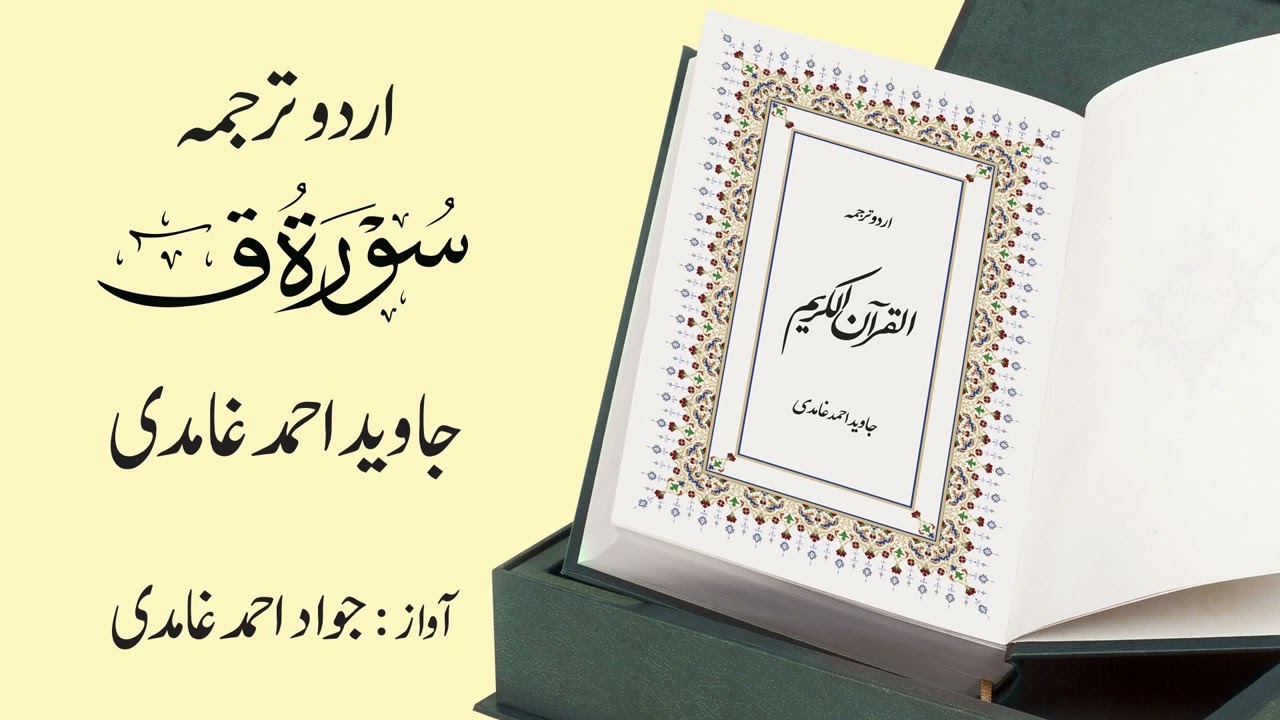 اردو ترجمہ
سُوْرَةُ ق
جاوید احمد غامدی
آواز : جواد احمد غامدی
اردو ترجمہ
القرآن الکریم
جاوید احمد غامدی